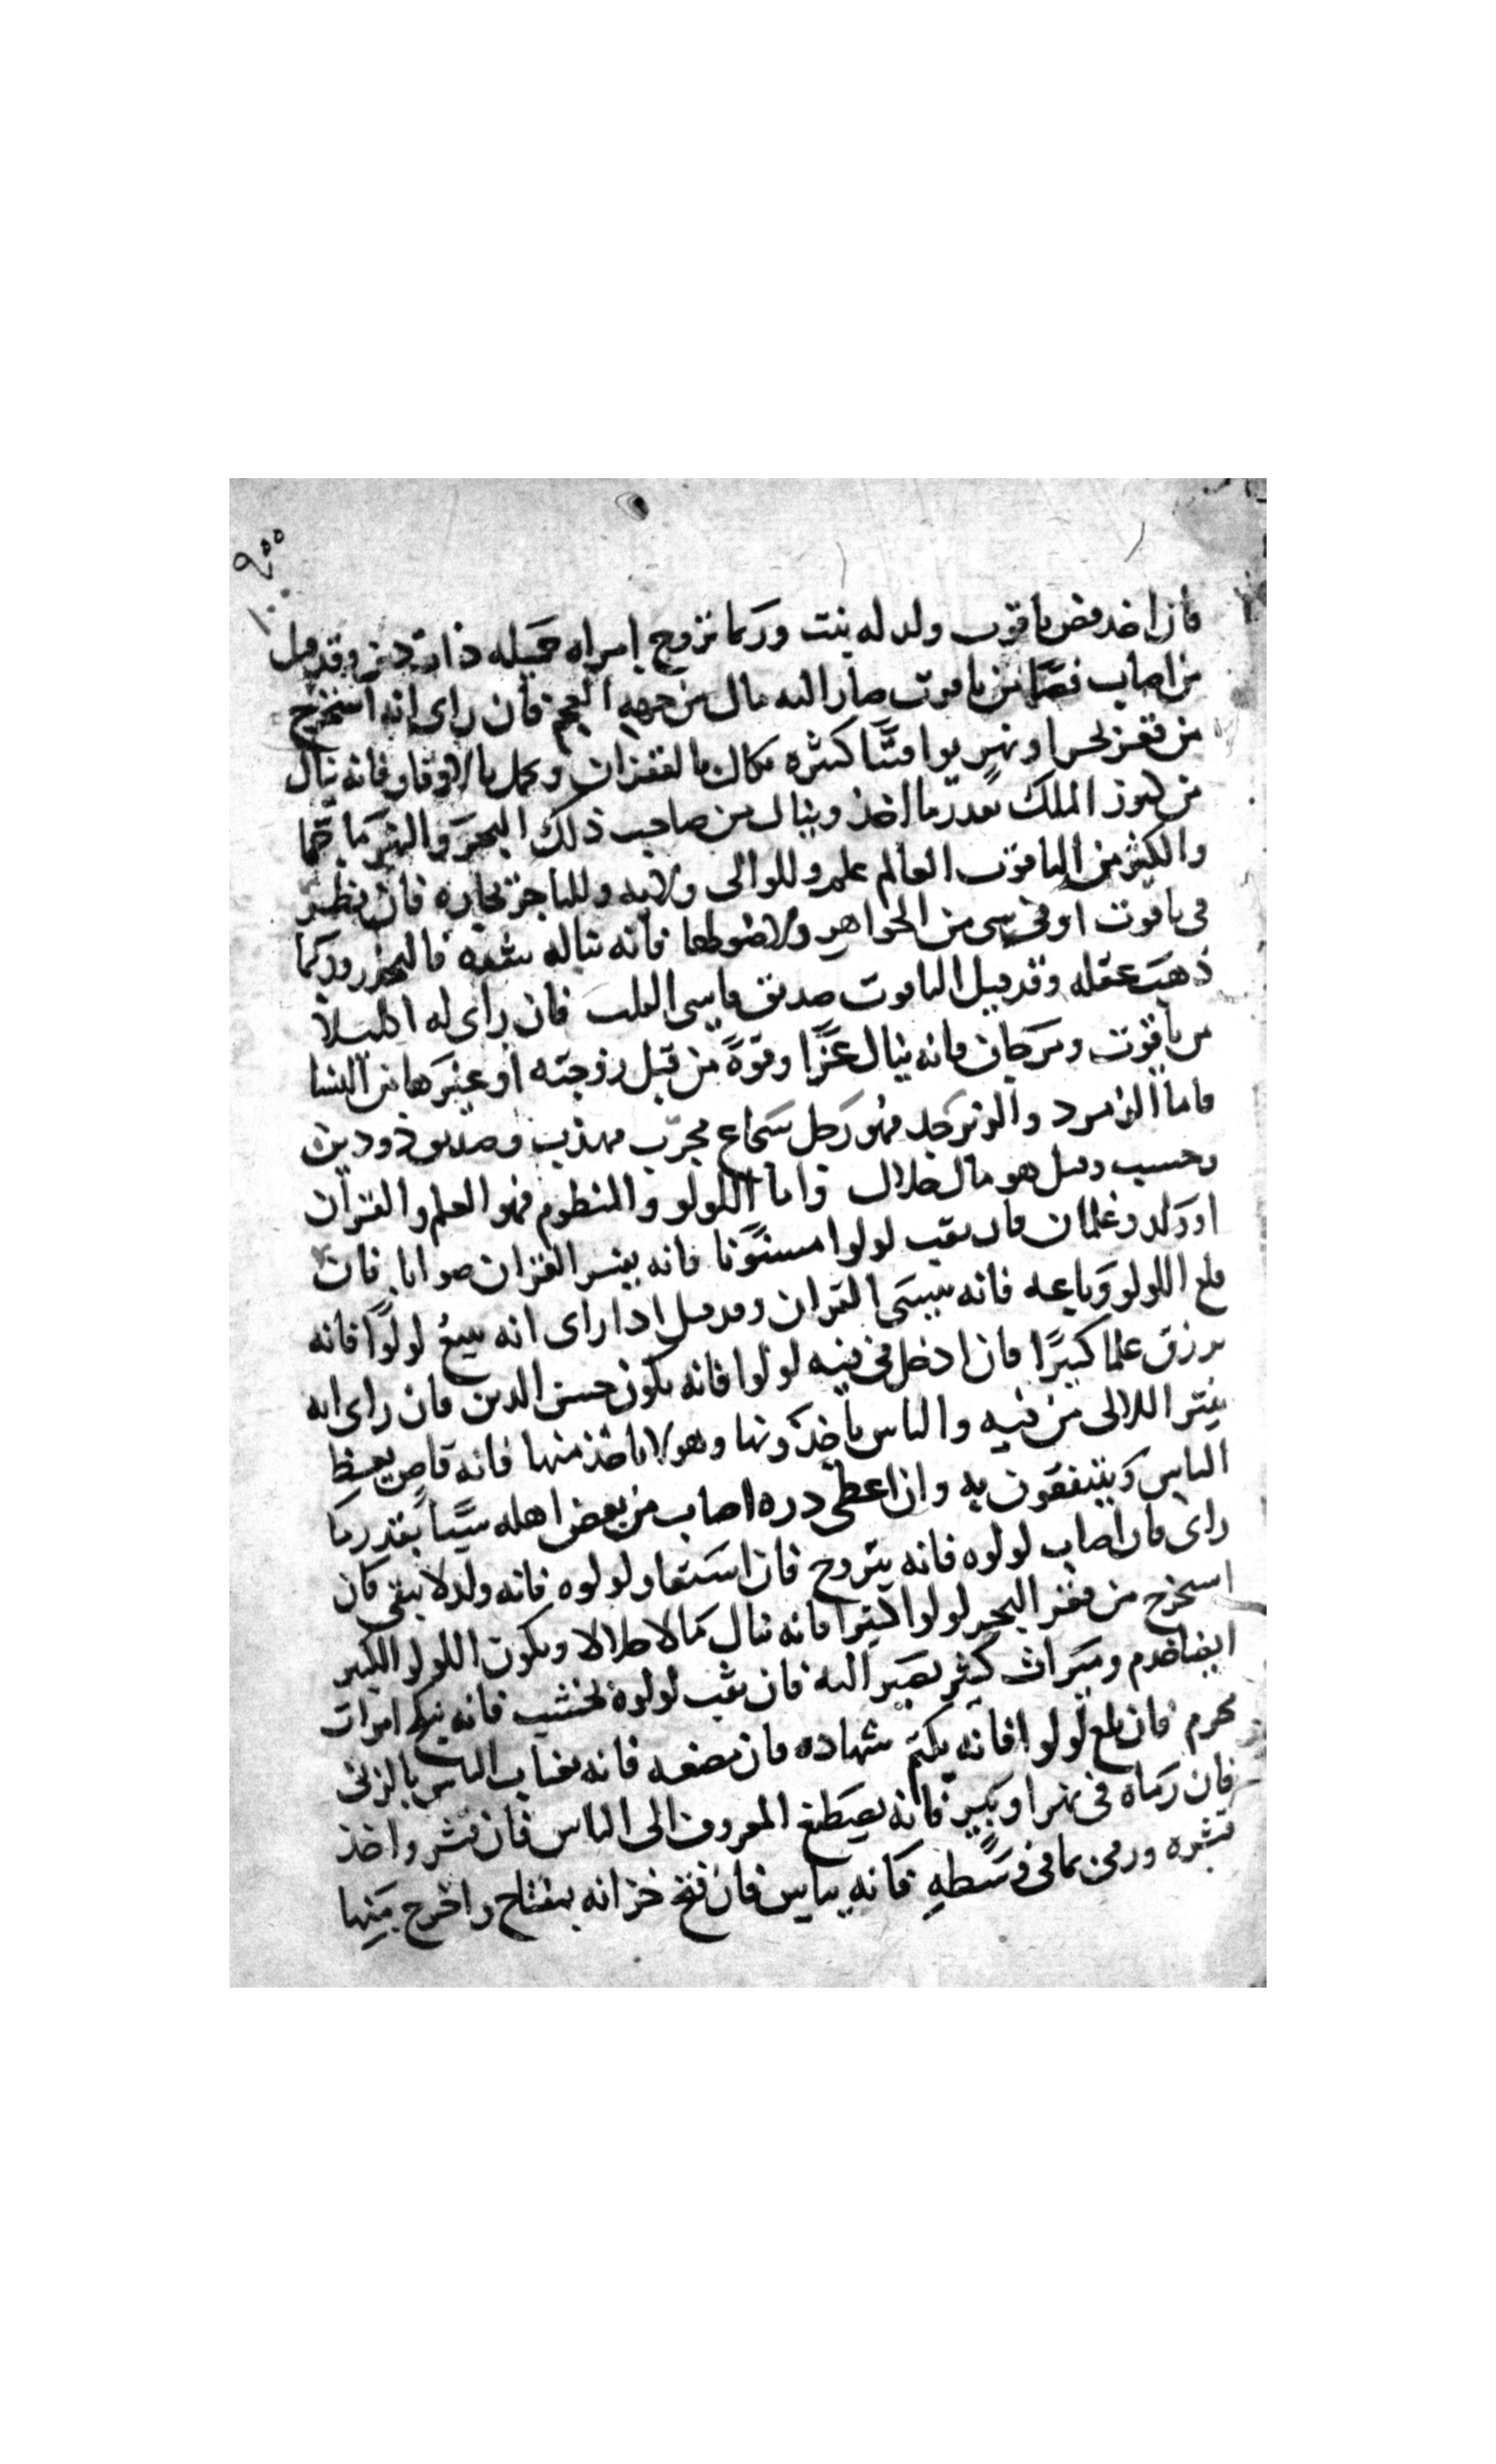 فان اخد فص ياقوت ولد له بنت وربما تزوج إمراه جميله ذات دين وقد قيل
من اصاب فصًّا من ياقوت صار اليه مال من جهة العجم فان راى انه استخرج
من قعر بحر او نهر يواقيتًا كثيره تكال بالقفزان وتحمل بالاوقار فانه ينال
من كنوز الملك بقدر ما اخذ وينال من صاحب ذلك البحر والنهر
والكثير من الياقوت العالم علم وللوالى ولايه وللتاجر تجاره فان نظر
فى ياقوت او فى سى من الجواهر ولا ضو لها فانه يناله شده فاليحذر وربما
ذهب عقله وقد قيل الياقوت صديق قاسى القلب فان راى له اكليلاً
من ياقوت ومرجان فانه ينال عزًّا وقوةً من قبل زوجته او غيرها من النسا
فاما الزمرد والزبرجد فهو رجل شجاع مجرّب مهذب وصديق ذو دين
وحسب وقيل هو مال حلال واما اللولو والمنظوم فهو العلم والقران
او ولد وغلمان فان ثقب لولوا مستويًا فانه يفسر القران صوابا فان
بلع اللولو وباعه فانه ينسى القران وقد قيل ادا راى انه يبيع لولوًا فانه
يرزق علما كبيرًا فان ادخل فى فيه لولوا فانه يكون حسن الدين فان راى انه
ينثر اللالى من فيه والناس ياخذونها وهو لا ياخذ منها فانه قاص يعظ
الناس وينتفعون به وان اعطى دره اصاب من بعض اهله سيًا بقدر ما
راى فان اصاب لولوه فانه يتزوج فان استعار لولوه فانه ولد لا يبقى فان
استخرج من قعر البحر لولوا كثيرا فانه ينال مالا حلالا ويكون اللولو الكثير
ايضا خدم وميراث كثير يصير اليه فان ثقب لولوة بخشب فانه ينكح امرات
محرم فان بلع لولوا فانه يكتم شهاده فان مضغه فانه يغتاب الناس بالزنى
فان رماه فى نهر او بير فانه يصطنع المعروف الى الناس فان قشر واخذ
قشره ورمى بما فى وسطه فانه نباش فان فتح خزانه بمفتاح واخرج منها